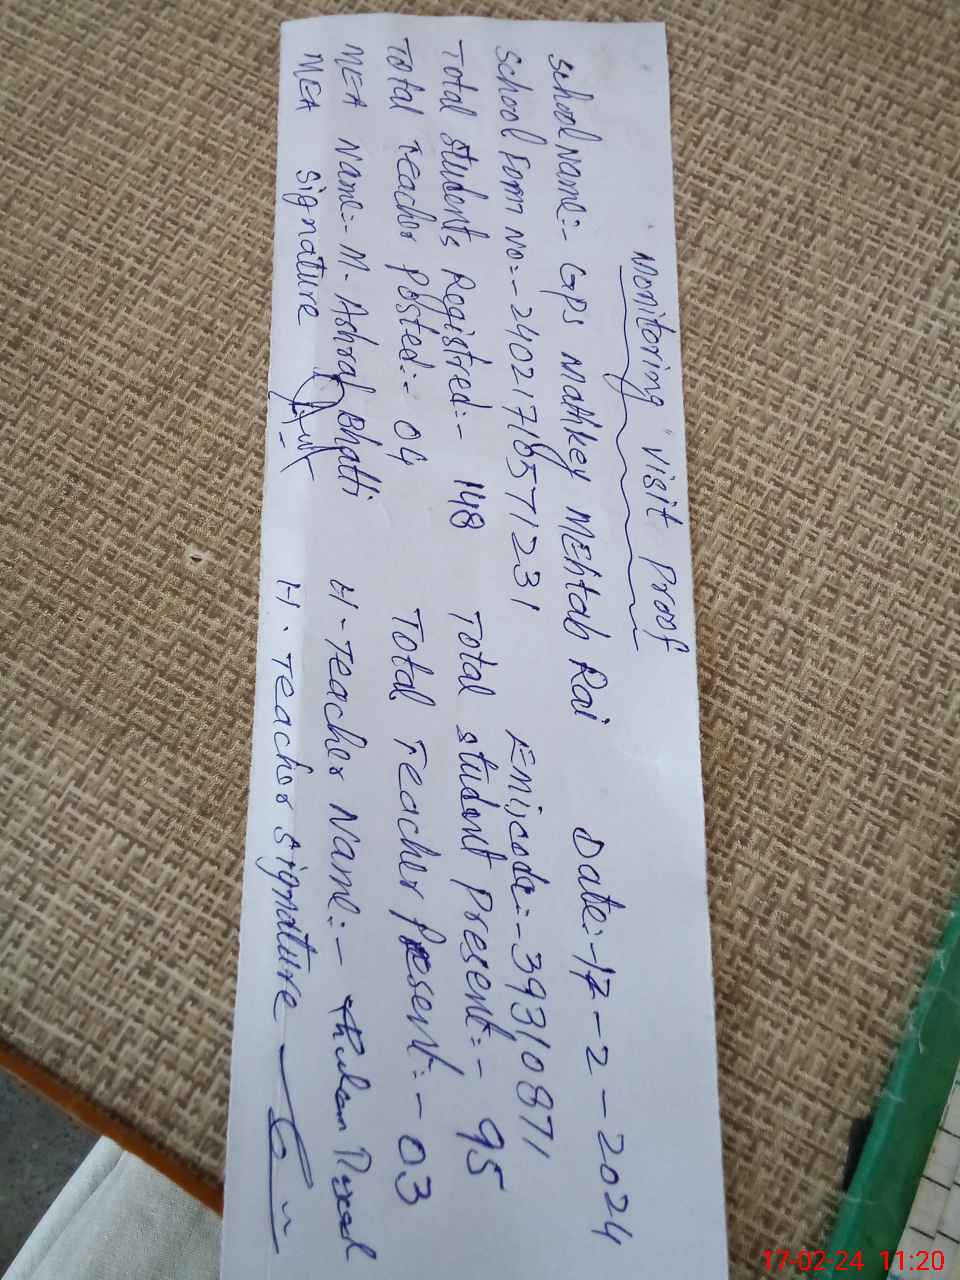 Monitoring Visit Proof
School Name:- GPS Mattikey MEhtab Rai Date:-17-2-2024
School Form No:-2402176571231 Emiscode:-39310871
Total students Registred:- 148 Total student Present:- 95
Total Teacher Posted:- 04 Total Teacher Present:- 03
MEA Name:- M. Ashraf Bhatti H-Teacher Name:-
MEA Signature H. Teacher Signature
17-02-24 11:20